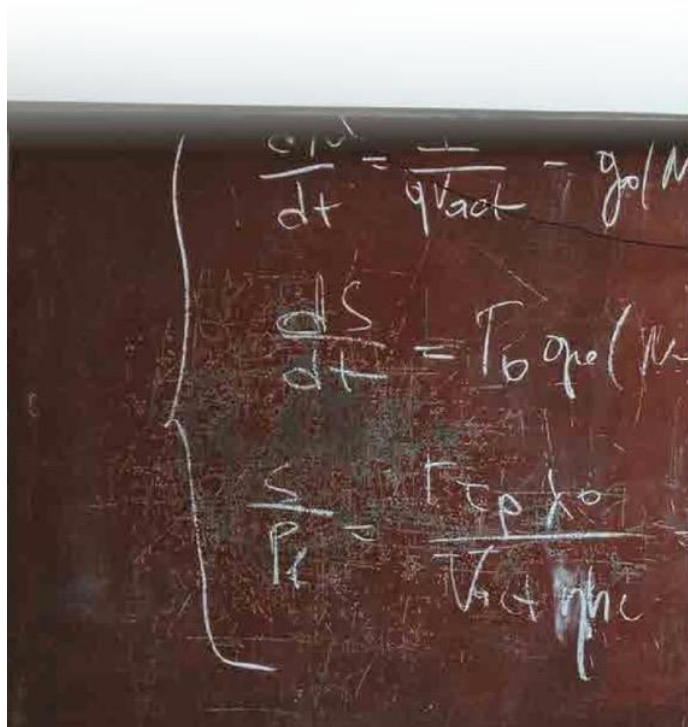 dN/dt = I/qVact - g0(N
dS/dt = Γ0 g0(N
S/Pf = Γτpλ0/Vact ηhc =